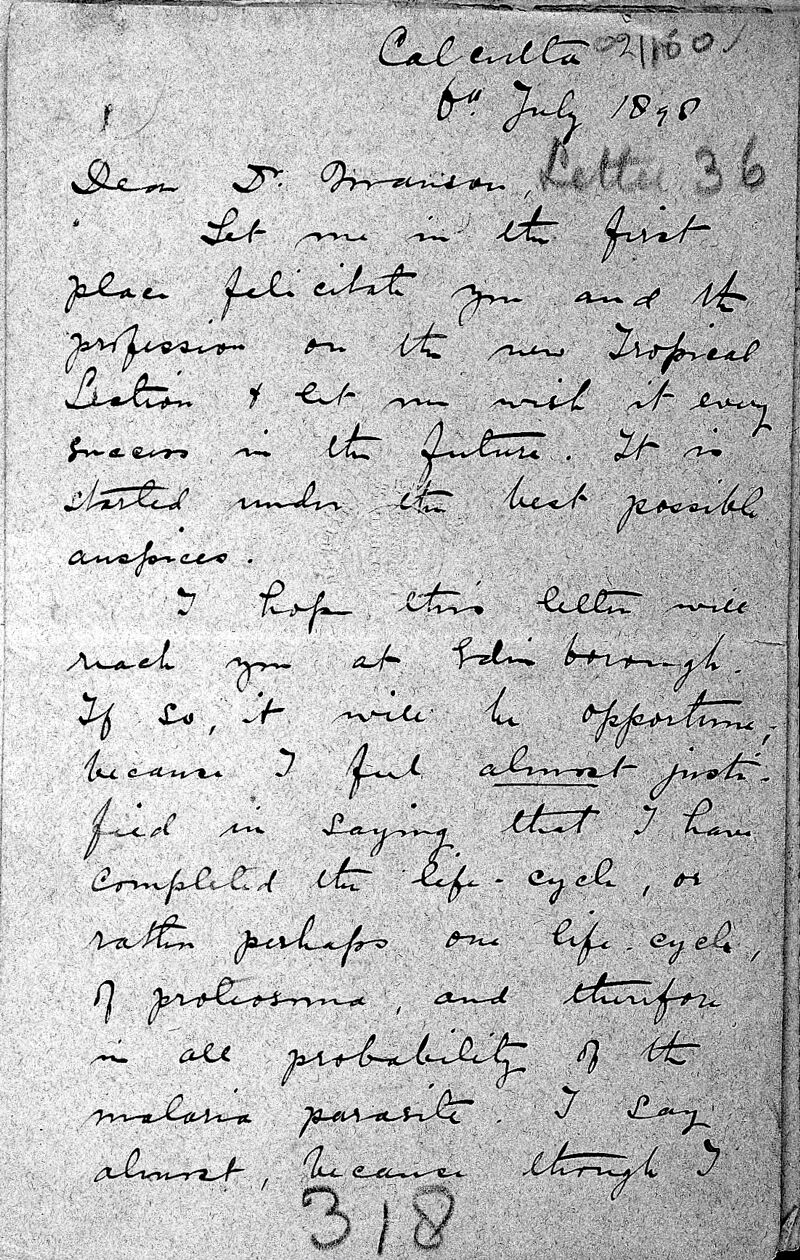 Calcutta 02/160
6th July 1898
Dear Dr. Manson, Letter 36
Let me in the first
place felicitate you and the
profession on the new Tropical
Section & let me wish it every
success in the future. It is
started under the best possible
auspices.
I hope this letter will
reach you at Edinborough.
If so, it will be opportune,
because I feel almost justi-
fied in saying that I have
completed the life-cycle, or
rather perhaps one life-cycle,
of proteosoma, and therefore
in all probability of the
malaria parasite. I say
almost, because though I
318